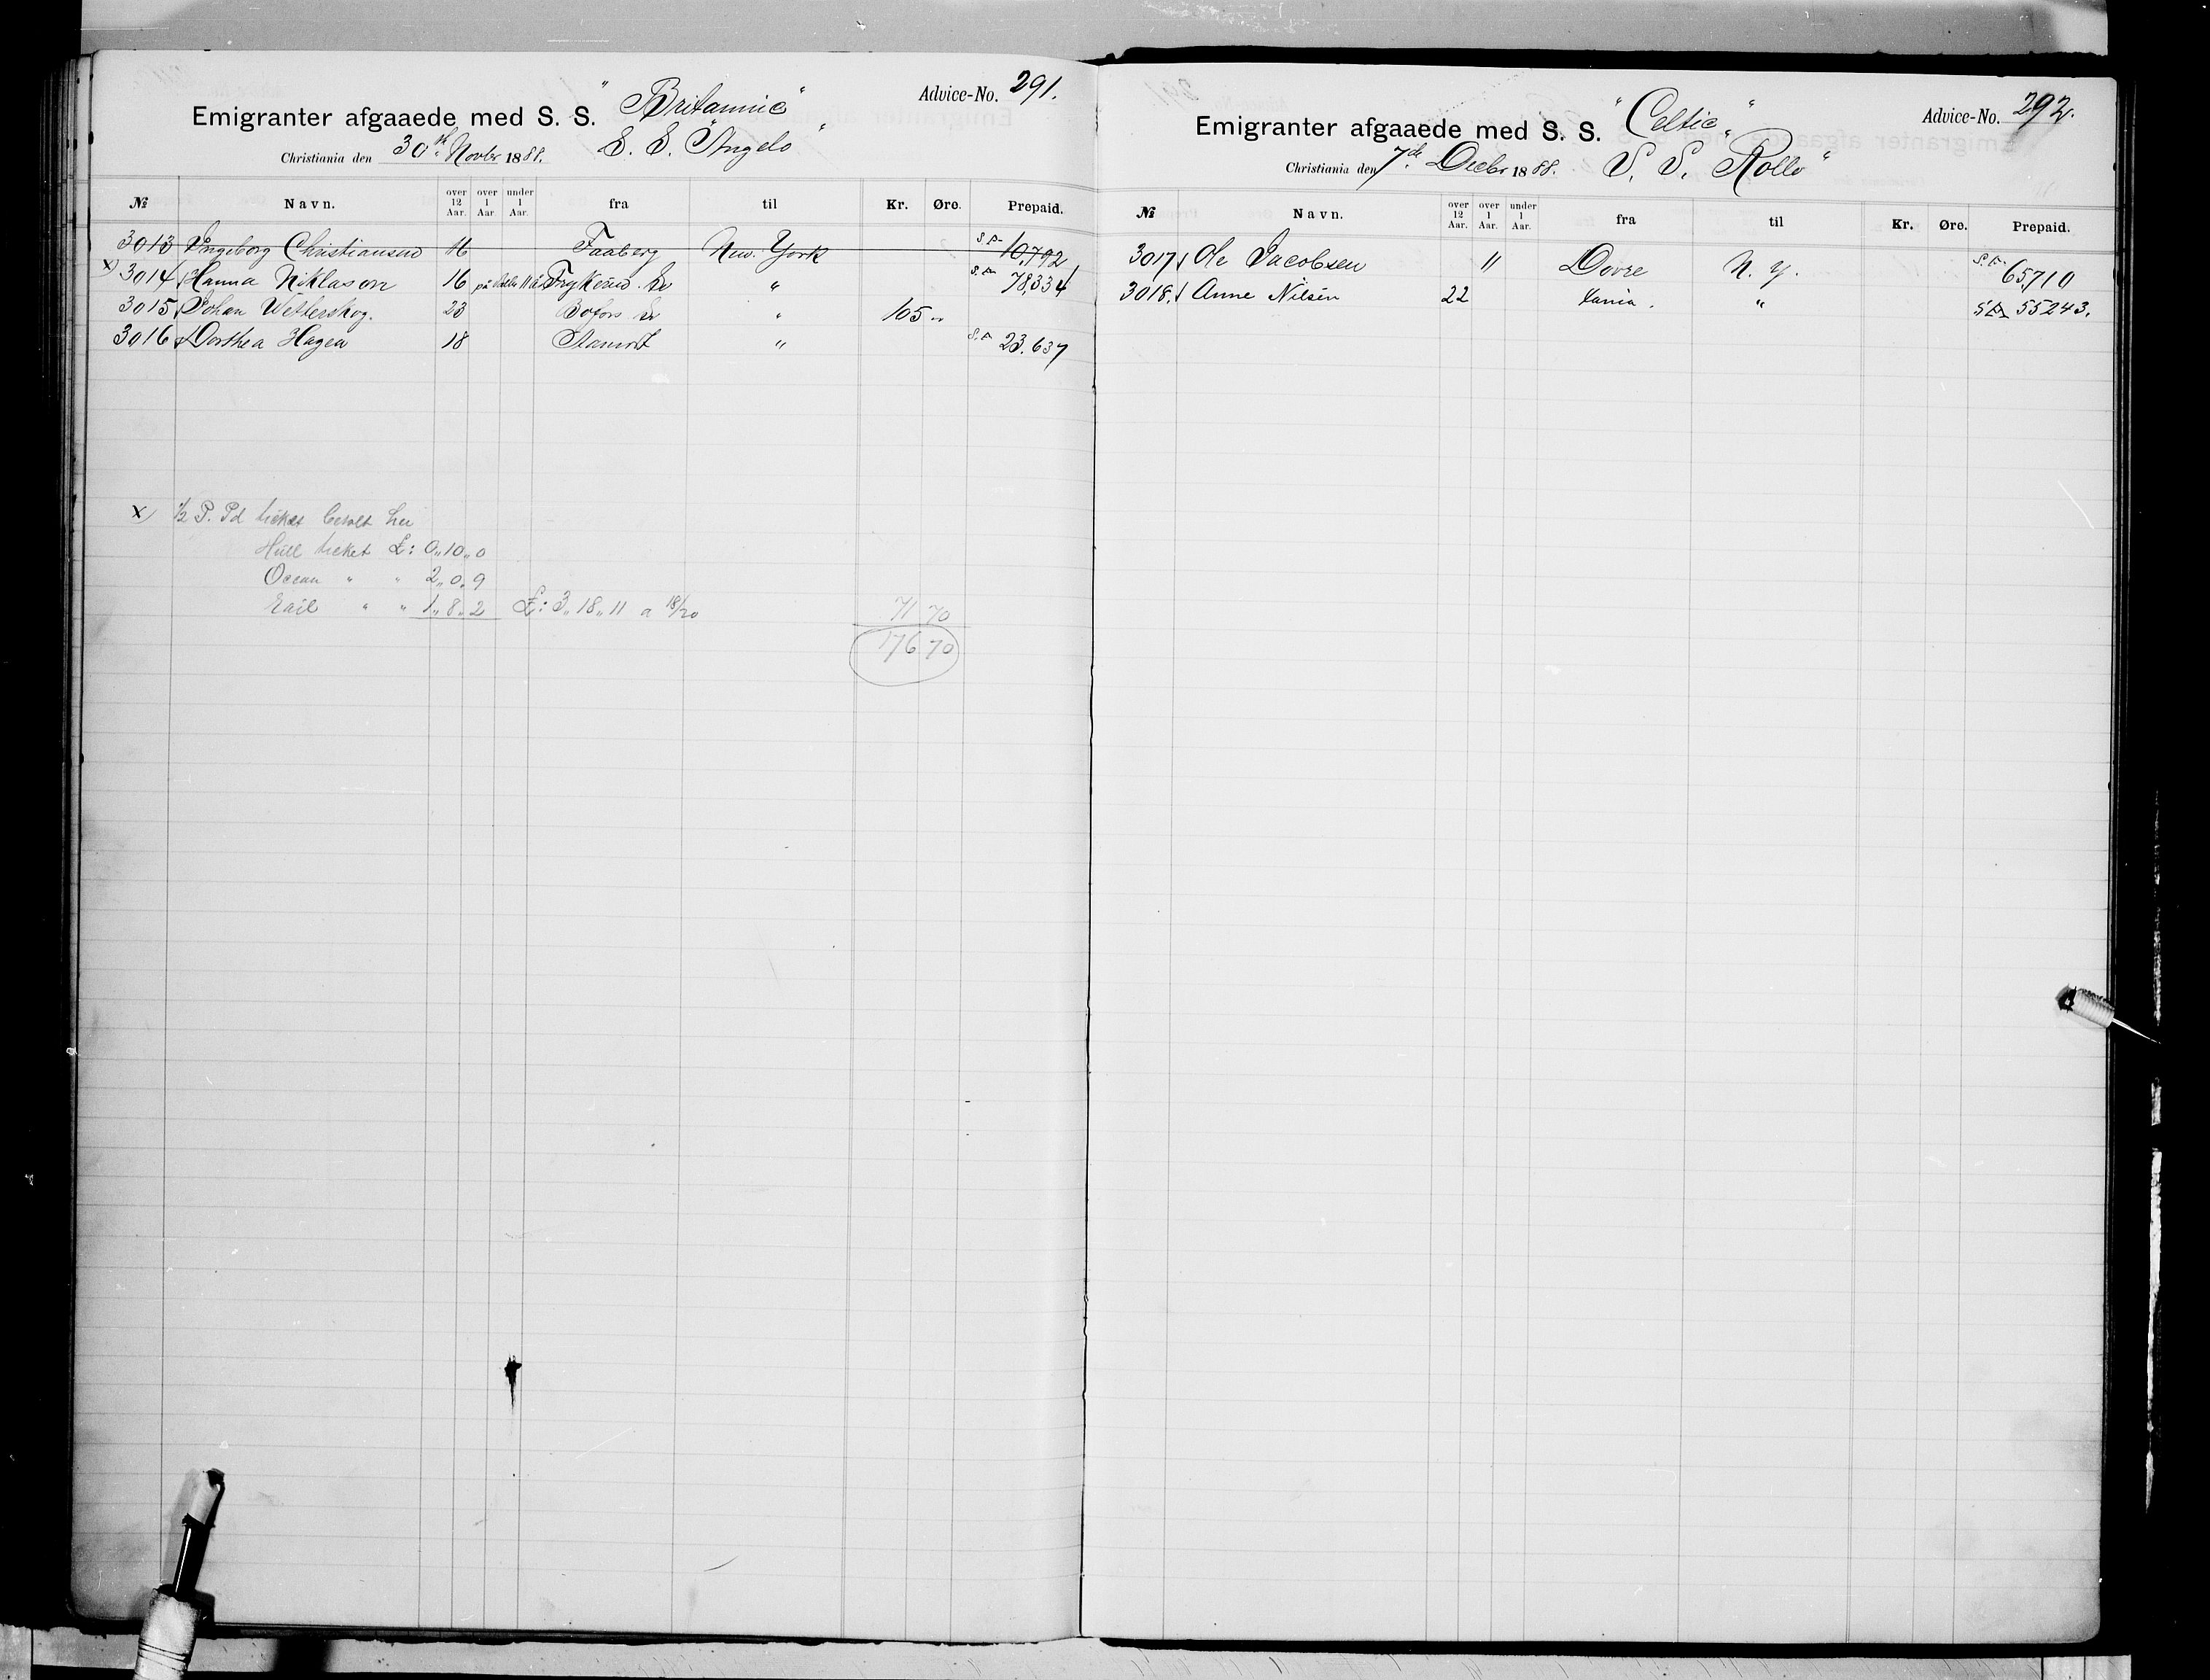 Advice-No. 291.
Emigranter afgaaede med S. S. "Britannic"
Christiania den 30te Novbr 1888. S. S. "Angelo"
№ Navn. over 12 Aar. over 1 Aar. under 1 Aar. fra til Kr. Øre. Prepaid.
3013 Ingeborg Christiansen 16 Faaberg New. York 10,792
x) 3014 Hanna Niklason 16 Frykerud " 78,334
3015 Johan Wetterskog. 23 Bofors " 105 "
3016 Dorthea Hagen 18 " 23.637
x) 1/2 P. Pd ticket betalt her
Hull ticket £: 0,,10,,0
Ocean " " 2,,0,,9
Rail " " 1,,8,,2 £: 3,,18,,11 a 18/20 71 70
176 70
Advice-No. 292.
Emigranter afgaaede med S. S. "Celtic"
Christiania den 7de Decbr 1888. S. S. Rollo"
№ Navn. over 12 Aar. over 1 Aar. under 1 Aar. fra til Kr. Øre. Prepaid.
3017 Ole Jacobsen 11 Dovre N. Y. 65,710
3018. Anne Nilsen 22 Xania. " 55243.